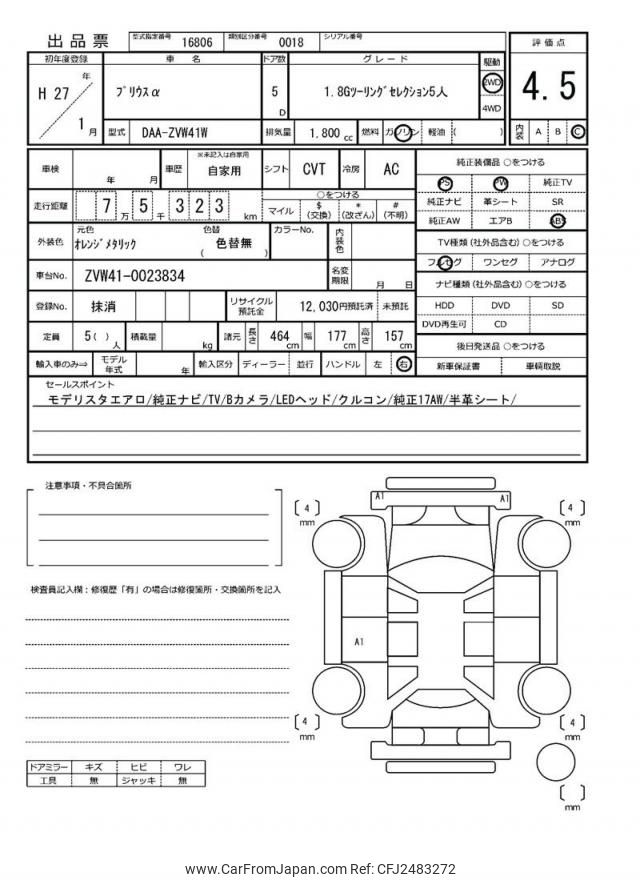 出品票
型式指定番号 16806 類別区分番号 0018 シリアル番号
初年度登録 車名 ドア数 グレード 駆動 評価点
H 27 年 1 月
プリウスα 5 D 1.8Gツーリングセレクション5人 2WD 4WD
4.5
型式 DAA-ZVW41W 排気量 1,800 cc 燃料 ガソリン 軽油 ( )
内装 A B C
車検 年 月 車歴 ※未記入は自家用 自家用 シフト CVT 冷房 AC
純正装備品 ○をつける
PS PW 純正TV
純正ナビ 革シート SR
純正AW エアB ABS
走行距離 7 万 5 千 3 2 3 km
○をつける
マイル $ (交換) * (改ざん) # (不明)
外装色 元色 オレンジメタリック 色替 色替無 ( ) カラーNo. 内装色
TV種類 (社外品含む) ○をつける
フルセグ ワンセグ アナログ
車台No. ZVW41-0023834 名変期限 月 日
ナビ種類 (社外品含む) ○をつける
HDD DVD SD
DVD再生可 CD
登録No. 抹消 リサイクル預託金 12,030円預託済 未預託
定員 5 ( ) 人 積載量 kg 諸元 長さ 464 cm 幅 177 cm 高さ 157 cm
後日発送品 ○をつける
新車保証書 車輌取説
輸入車のみ⇒ モデル年式 年 輸入区分 ディーラー 並行 ハンドル 左 右
セールスポイント
モデリスタエアロ/純正ナビ/TV/Bカメラ/LEDヘッド/クルコン/純正17AW/半革シート/
注意事項・不具合箇所
検査員記入欄：修復歴「有」の場合は修復箇所・交換箇所を記入
A1 A1
[ 4 ] mm
[ 4 ] mm
A1
[ 4 ] mm
[ 4 ] mm
[ ] mm
ドアミラー キズ ヒビ ワレ
工具 無 ジャッキ 無
www.CarFromJapan.com Ref: CFJ2483272